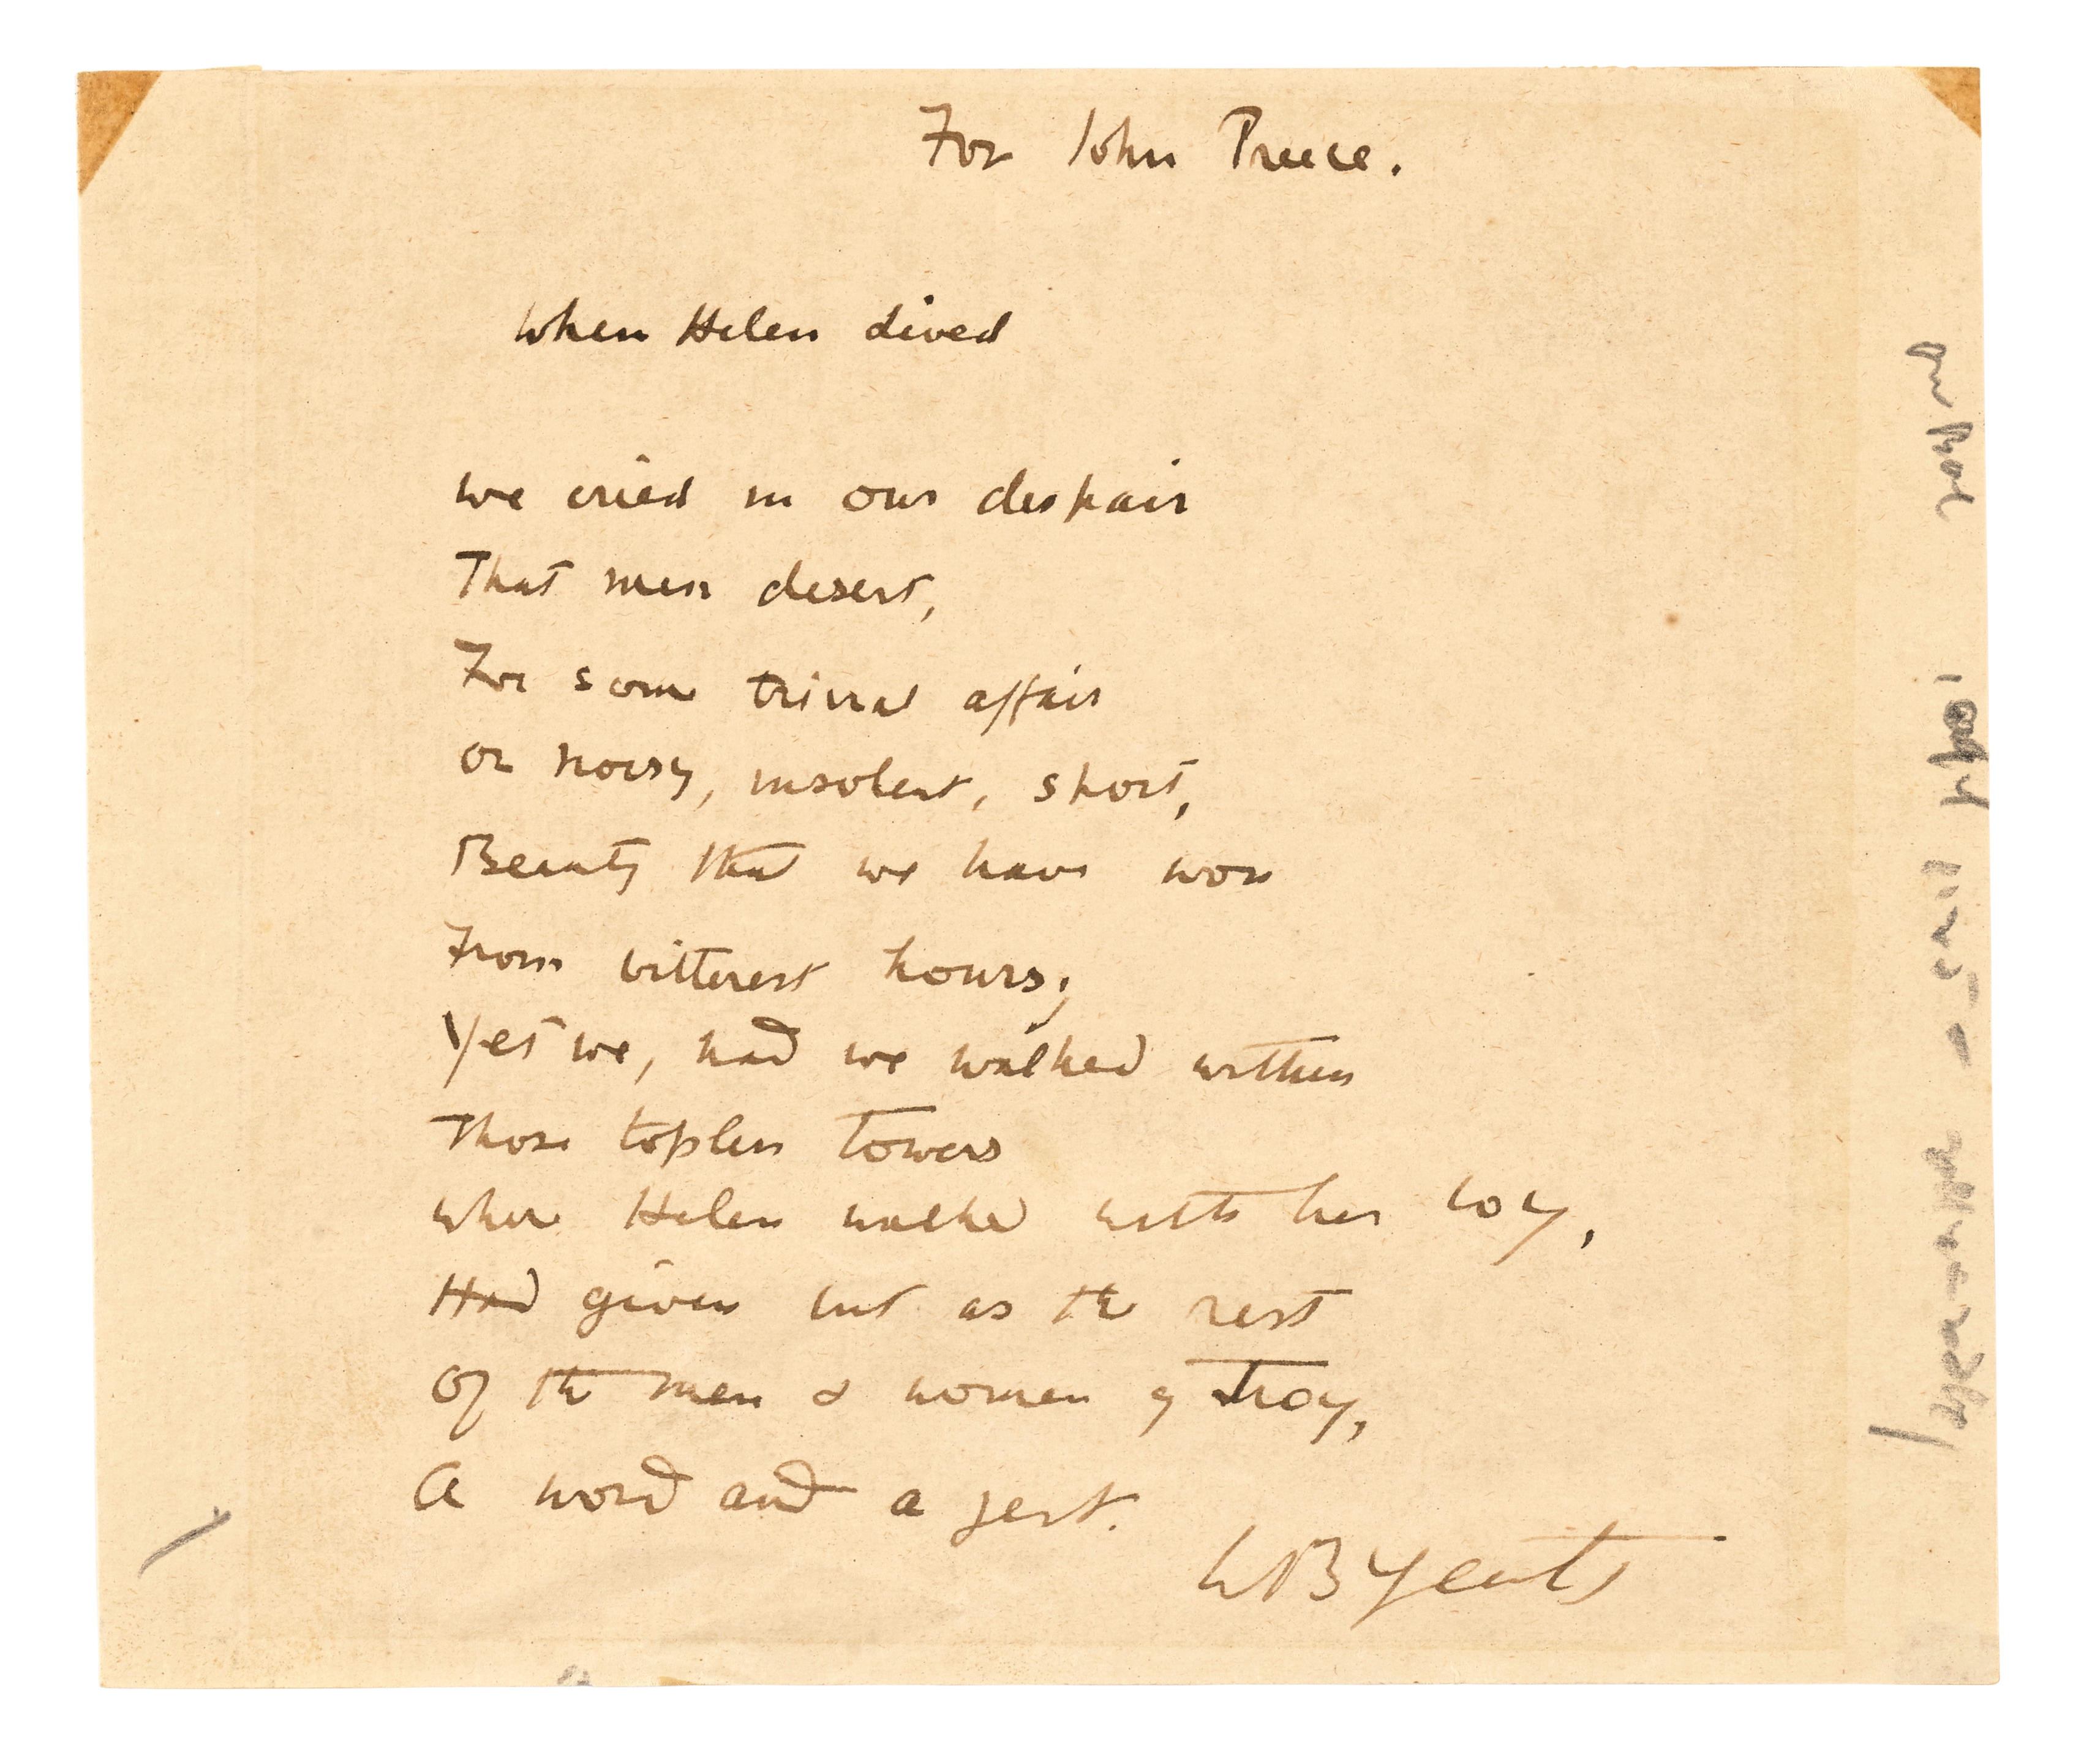 For John Preece.
When Helen lived
We cried in our despair
That men desert,
For some trivial affair
Or noisy, insolent, sport,
Beauty that we have won
From bitterest hours;
Yet we, had we walked within
Those topless towers
Where Helen walked with her boy,
Had given but as the rest
Of the men & women of Troy,
A word and a jest.
WB Yeats